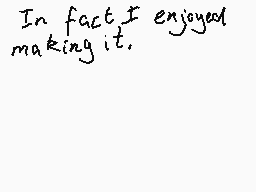 In fact I enjoyed
making it.